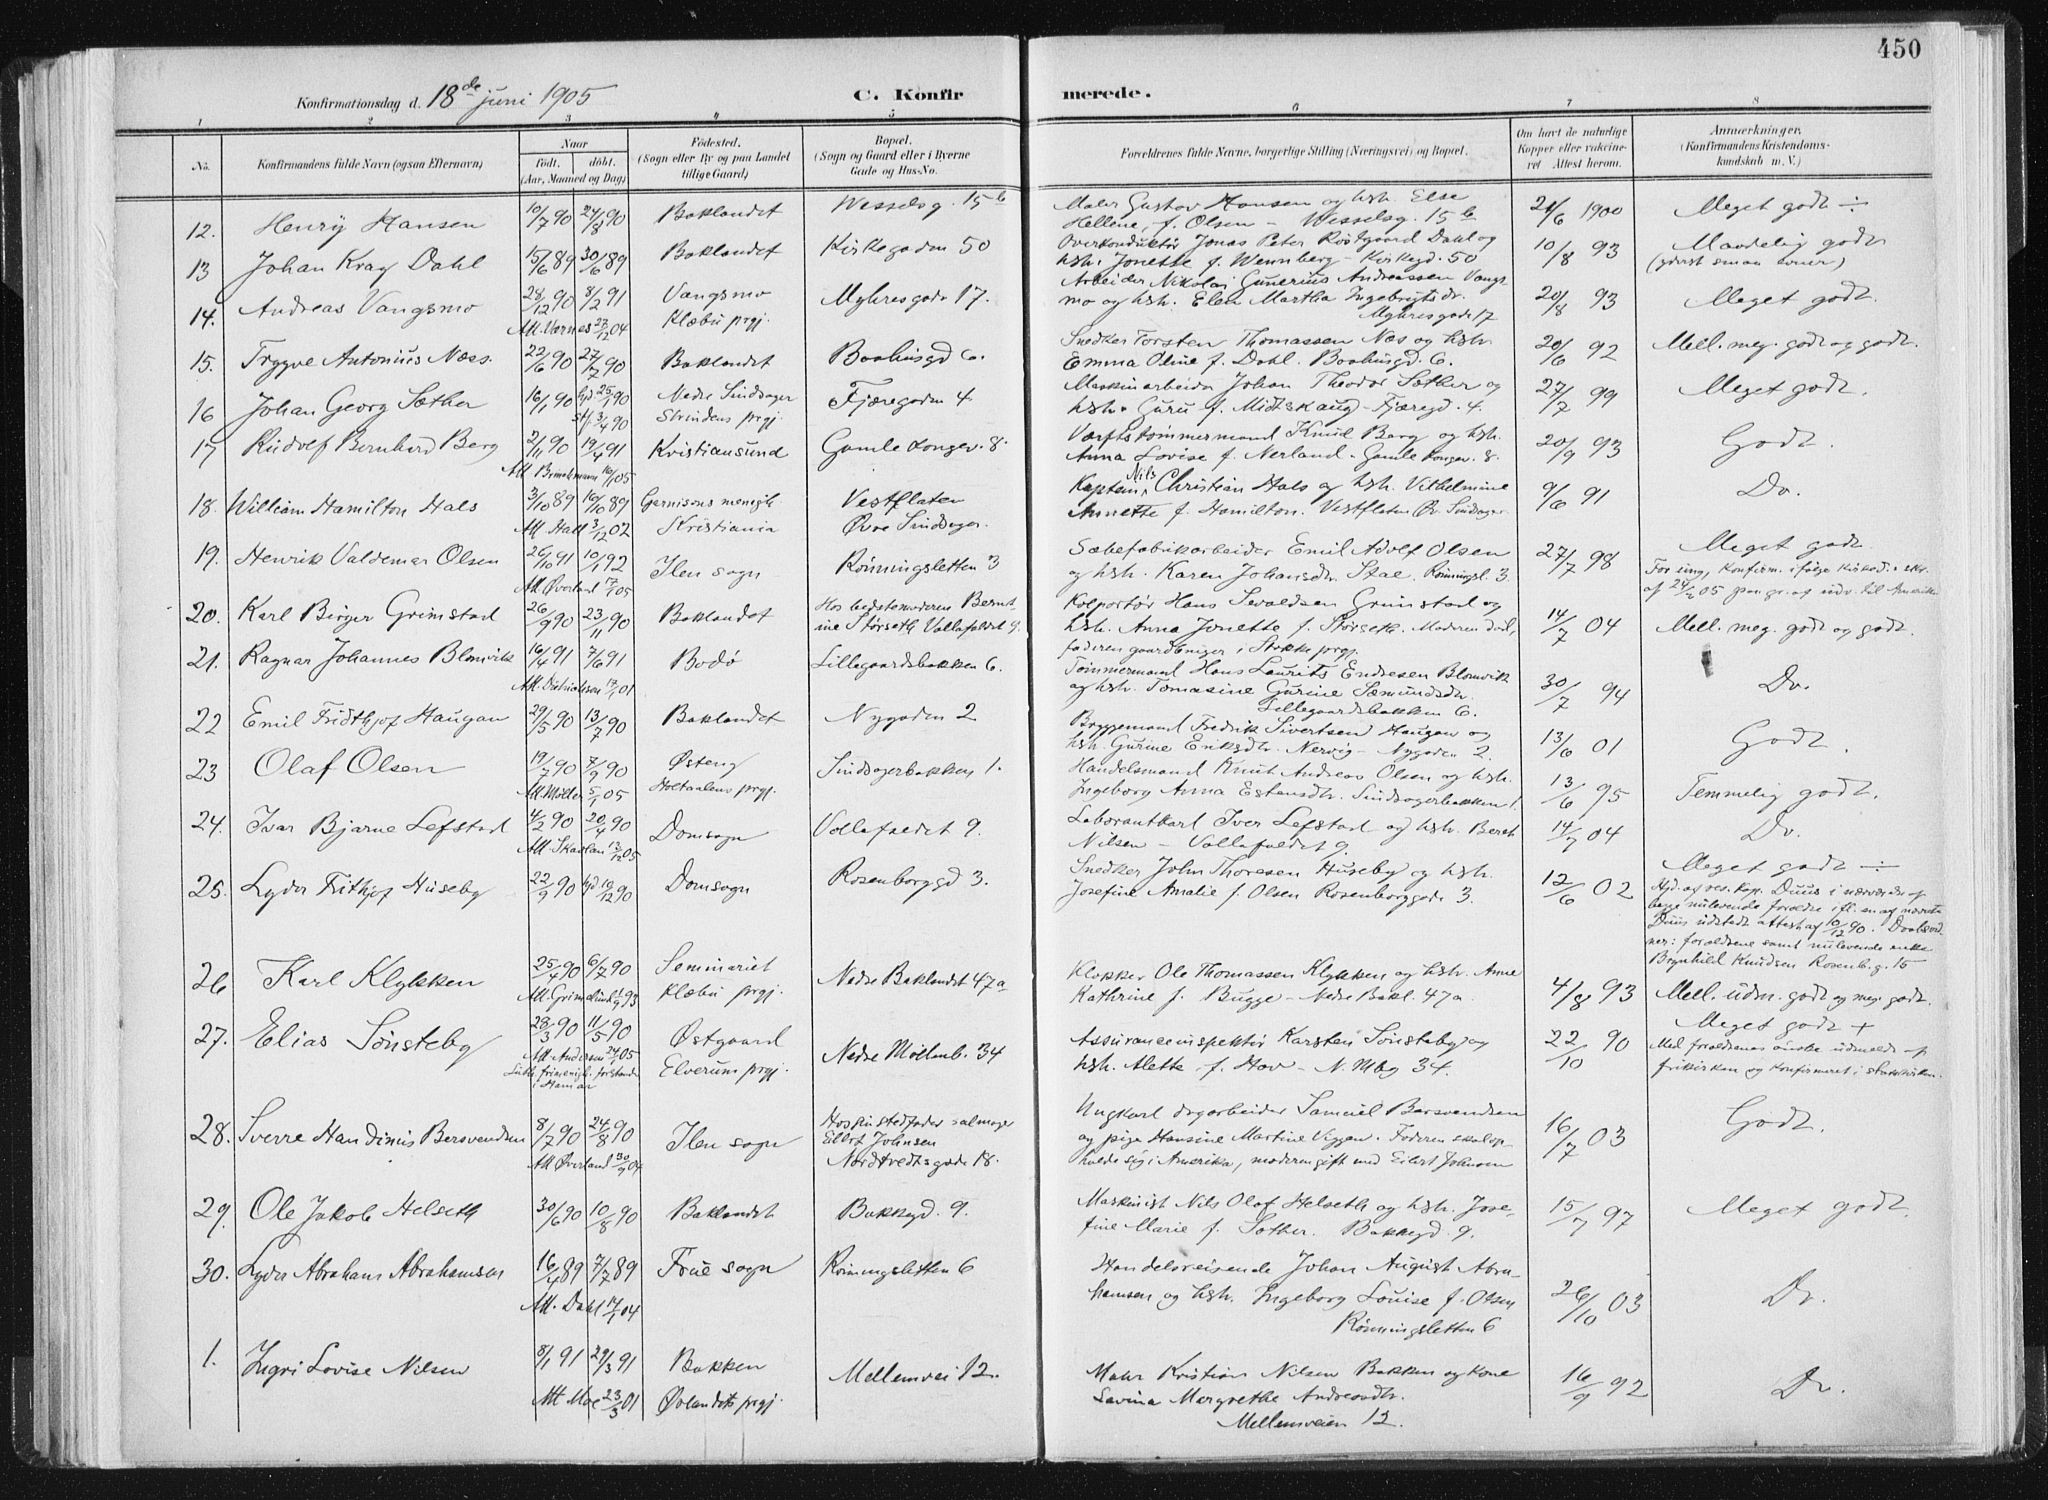 450
Konfirmationsdag d. 18de juni 1905
C. Konfirmerede.
1 2 3 4 5 6 7 8
No.
Konfirmandens fulde Navn (ogsaa Efternavn)
Naar
födt. döbt.
(Aar, Maaned og Dag)
Födested.
(Sogn eller By og paa Landet
tillige Gaard)
Bopæl.
(Sogn og Gaard eller i Byerne
Gade og Hus-No.
Forældrenes fulde Navne, borgerlige Stilling (Næringsvei) og Bopæl.
Om havt de naturlige
Kopper eller vakcine-
ret Attest herom.
Anmærkninger.
(Konfirmandens Kristendoms-
kundskab m. V.)
12. Henry Hansen 10/7 90 24/8 90 Baklandet Wesselsg. 15 b
Maler Gustav Hansen og hsh. Else
Hellene, f. Olsen Wesselsg. 15 b
21/6 1900 Meget godt ÷
13 Johan Krag Dahl 15/6 89 30/6 89 Baklandet Kirkegaden 50
Overkonduktör Jonas Peter Röstgaard Dahl og
hsh. Jonette f. Wennberg - Kirkegd. 50
10/8 93 Maadelig godt
(yderst smaa evner)
14. Andreas Vangsmo 28/12 90 8/2 91 Vangsmo Myhresgade 17.
Att. Vornes 27/12 04 Klæbu prgj.
Arbeider Nikolai Gunerius Andreassen Vangs
mo og hsh. Elen Martha Ingebrigtsdr.
Myhresgade 17
20/8 93 Meget godt.
15. Trygve Antonius Næss. 22/6 90 27/7 90 Baklandet Baahusgd 6.
Snedker Torsten Thomassen Næs og hsh.
Emma Oline f. Dahl. Baahusgd. 6.
20/6 92 Mell. meg. godt og godt.
16 Johan Georg Sæther 16/1 90 hjd 25/1 90 Nedre Singsager Fjæregaden 4
St. 3/4 90 Strindens prgj.
Maskinarbeider Johan Theodor Sæther og
hsh. Guru f. Midtskaug - Fjæregd. 4.
27/7 99 Meget godt.
17 Rudolf Bernhard Berg 2/11 90 19/4 91 Kristiansund Gamle Kongev. 8.
Værftstømmermand Knud Berg og hsh.
Anna Lovise f. Nerland - Gamle Kongev. 8.
20/9 93 Godt.
18. William Hamilton Hals 3/10 89 16/10 89 Garnisons menigh. Vestflaten
Att. Hall 3/12 02 Kristiania Övre Singsager.
Kaptein Nils Christian Hals og hsh. Vilhelmine
Annette f. Hamilton. Vestflaten Öv. Singsager
9/6 91 Do.
19. Henrik Valdemar Olsen 26/10 91 10/1 92 Ilen sogn Rönningsletten 3
Att. Överland 17/1 05
Sæbefabrikarbeider Emil Adolf Olsen
og hsh. Karen Johansdr. Stae. Rönningsl. 3.
27/7 98 Meget godt
For ung, konfirm. ifølge
20. Karl Birger Grimstad 26/9 90 23/11 90 Baklandet Hos bedstemoderen Bernt-
ine Störseth Vollafaldet 9.
Kolportör Hans Sevaldsen Grimstad og
hsh. Anna Jonette f. Störseth. Moderen död,
faderen gaardbruger i Stokke prgj.
14/7 04 Mell. meg. godt og godt.
21. Ragnar Johannes Blomvik 16/4 91 7/6 91 Bodö Lillegaardsbakken 6.
Att. Didrichsen 17/1 01
Tömmermand Hans Laurits Endresen Blomvik
og hsh. Tomasine Gurine Sæmundsdr.
Lillegaardsbakken 6.
30/7 94 Do.
22 Emil Fridthjof Haugan 29/5 90 13/7 90 Baklandet Nygaden 2
Bryggemand Fredrik Sivertsen Haugan og
hsh. Gurine Eriksdtr. Nervig - Nygaden 2.
13/6 01 Godt.
23 Olaf Olsen 19/7 90 7/9 90 Østeng Singsagerbakken 1.
Att. Möller 5/1 05 Holtaalens prgj.
Handelsmand Knut Andreas Olsen og hsh.
Ingeborg Anna Estensdtr. Singsagerbakken 1.
13/6 95 Temmelig godt.
24. Ivar Bjarne Lefstad 4/2 90 20/4 90 Domsogn Vollafaldet 9.
Laborantkarl Iver Lefstad og hsh. Beret
Nilsen - Vollafaldet 9.
14/7 04 Do.
25. Lyder Frithjof Huseby 22/9 90 hjd 10/12 90 Domsogn Rosenborggd 3.
Snedker John Thoresen Huseby og hsh.
Josefine Amalie f. Olsen Rosenborggade 3.
12/6 02 Meget godt ÷
Hjd. af res. kap. Duus i nærvær
Duus udstedt attest af 10/12 90.
forældrene samt
Brynhild Knudsen Rosenb.g. 15
26 Karl Klykken 25/4 90 6/7 90 Seminariet Nedre Baklandet 47a
Klæbu prgj.
Klokker Ole Thomassen Klykken og hsh. Anne
Kathrine f. Bugge - Nedre Bakl. 47a.
4/8 93 Mell. udm. godt og meg. godt.
27. Elias Sönsteby 28/3 90 11/5 90 Østgaard Nedre Möllenb. 34
Att. Andersen 24/1 05 Elverum prgj.
Luth. frimenigh. forstander
i Hamar
Assuranceinspektör Karsten Sönsteby og
hsh. Alette f. Hov - N. Mbg 34.
22/10 90 Meget godt +
Med forældrenes önske udmeldt af
frikirken og konfirmeret i statskirken.
28. Sverre Handinus Bersvendsen 8/7 90 24/8 90 Ilen sogn Hos pustedfader salmager
Eilert Johnsen
Att. Överland 30/9 04 Nordtvedtsgade 18.
Ungkarl dagarbeider Samuel Bersvendsen
og pige Hansine Martine Viggen. Faderen skal op-
holde sig i Amerika, moderen gift med Eilert Johnsen
16/7 03 Godt.
29. Ole Jakob Helseth 30/6 90 10/8 90 Baklandet Bakkegd. 9.
Maskinist Nils Olaf Helseth og hsh. Jose-
fine Marie f. Sæther. Bakkegd. 9.
15/7 97 Meget godt.
30. Lyder Abraham Abrahamsen 16/4 89 7/7 89 Frue sogn Rönningsletten 6
Att. Dahl 17/1 04
Handelsreisende Johan August Abra-
hamsen og hsh. Ingeborg Louise f. Olsen
Rönningsletten 6
26/10 03 Do.
1. Ingri Lovise Nilsen 8/1 91 29/3 91 Bakken Mellemvei 12.
Att. Moe 23/3 01 Ørlandets prgj.
Maler Kristian Nilsen Bakken og kone
Lavina Margrethe Andreasdtr.
Mellemveien 12.
16/9 92 Do.